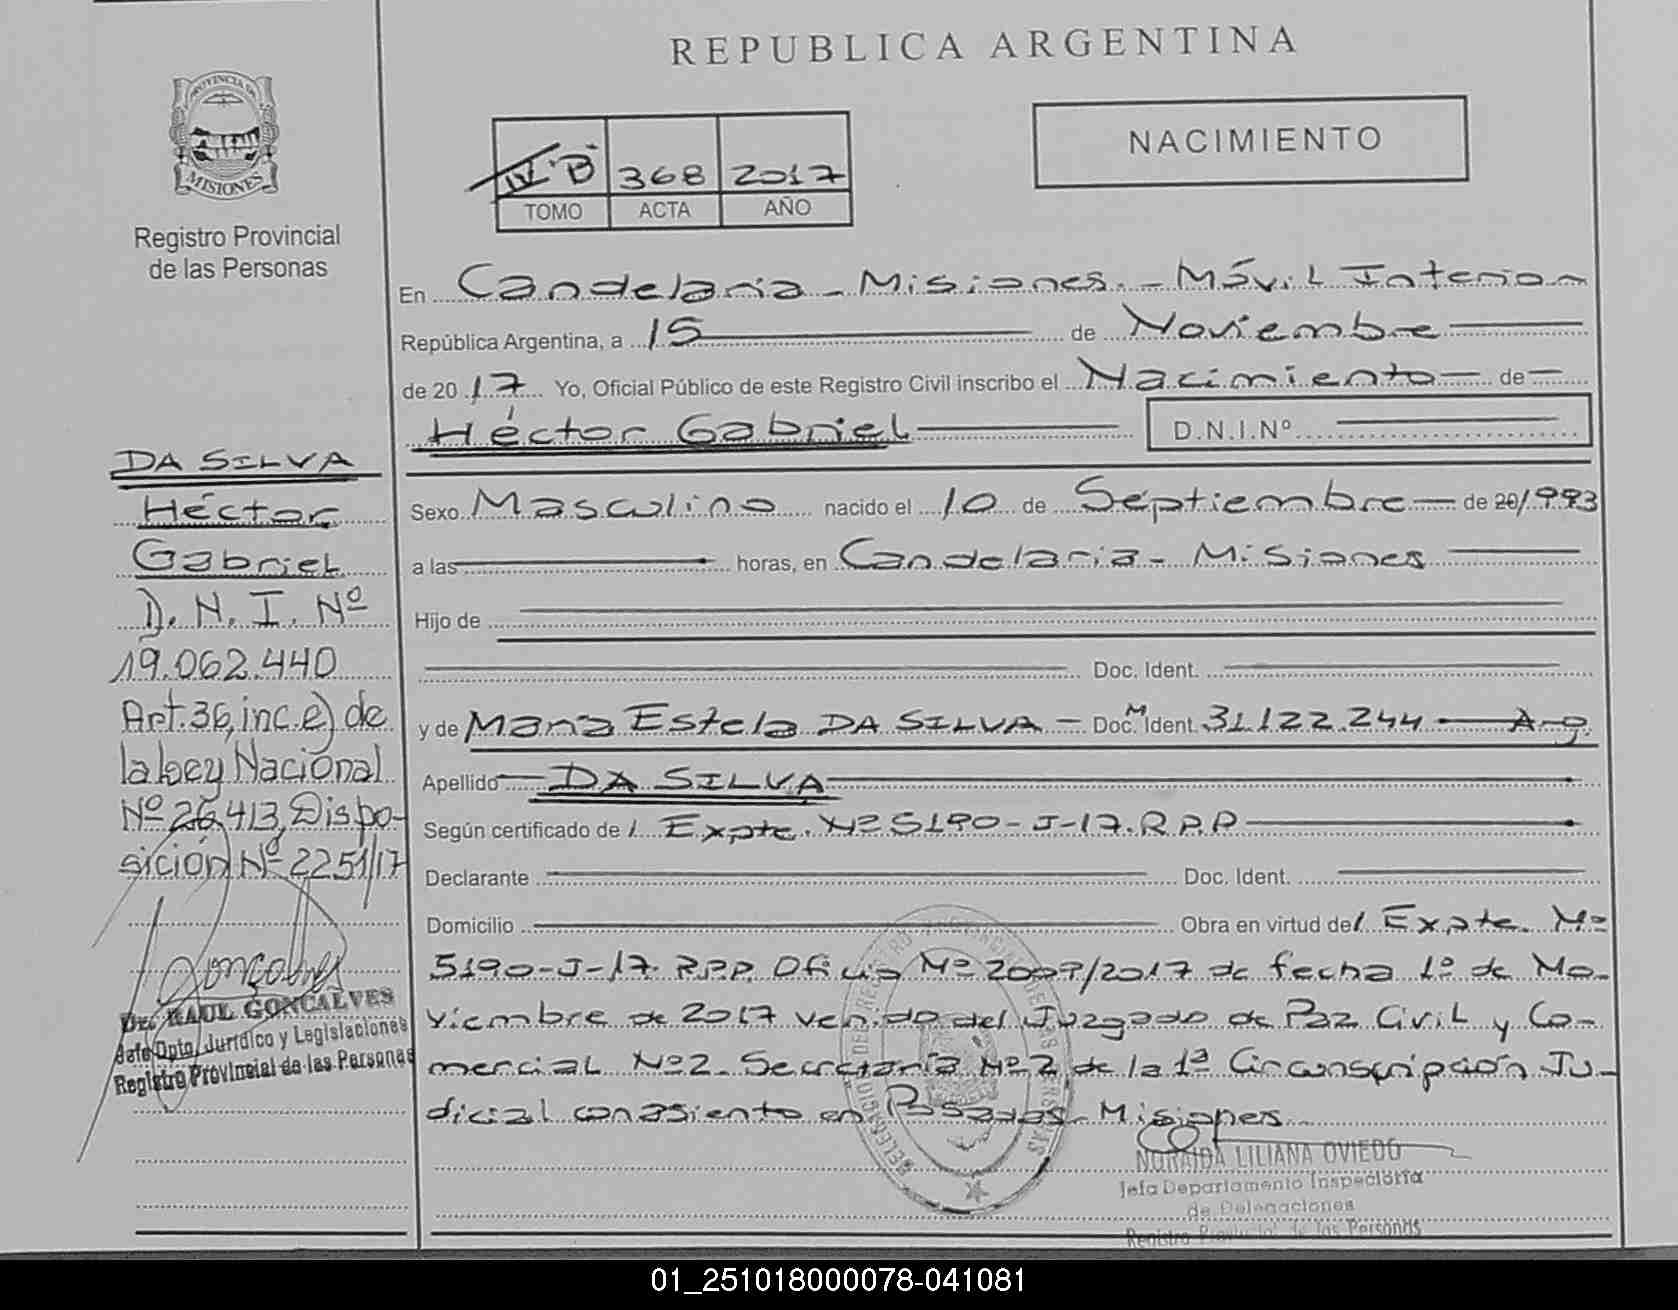 REPUBLICA ARGENTINA
PROVINCIA DE
MISIONES
Registro Provincial
de las Personas
IV "B" 368 2017
TOMO ACTA AÑO
NACIMIENTO
En Candelaria - Misiones. - Móvil Interior
República Argentina, a 15 de Noviembre
de 2017 Yo, Oficial Público de este Registro Civil inscribo el Nacimiento de
Héctor Gabriel D.N.I.Nº
Sexo Masculino nacido el 10 de Septiembre de 20/1993
a las horas, en Candelaria - Misiones
Hijo de
Doc. Ident.
y de María Estela DA SILVA - Doc. M Ident. 31.122.244 Arg.
Apellido DA SILVA
Según certificado de / Expte. Nº 5190-J-17. R.P.P
Declarante Doc. Ident.
Domicilio Obra en virtud de / Expte. Nº
5190-J-17. R.P.P. Oficio Nº /2017 de fecha 1º de No-
viembre de 2017 venido del Juzgado de Paz Civil y Co-
mercial Nº2. Secretaría Nº2 de la 1ª Circunscripción Ju-
dicial con asiento en Posadas - Misiones.
NORAIDA LILIANA OVIEDO
Jefa Departamento Inspectoría
de Delegaciones
Registro Provincial de las Personas
DA SILVA
Héctor
Gabriel
D. N. I. Nº
19.062.440
Art. 36, inc. e) de
la Ley Nacional
Nº 26.413, Dispo-
sición Nº 2251/17
Goncalves
Dr. RAUL GONCALVES
Jefe Dpto. Jurídico y Legislaciones
Registro Provincial de las Personas
01_251018000078-041081